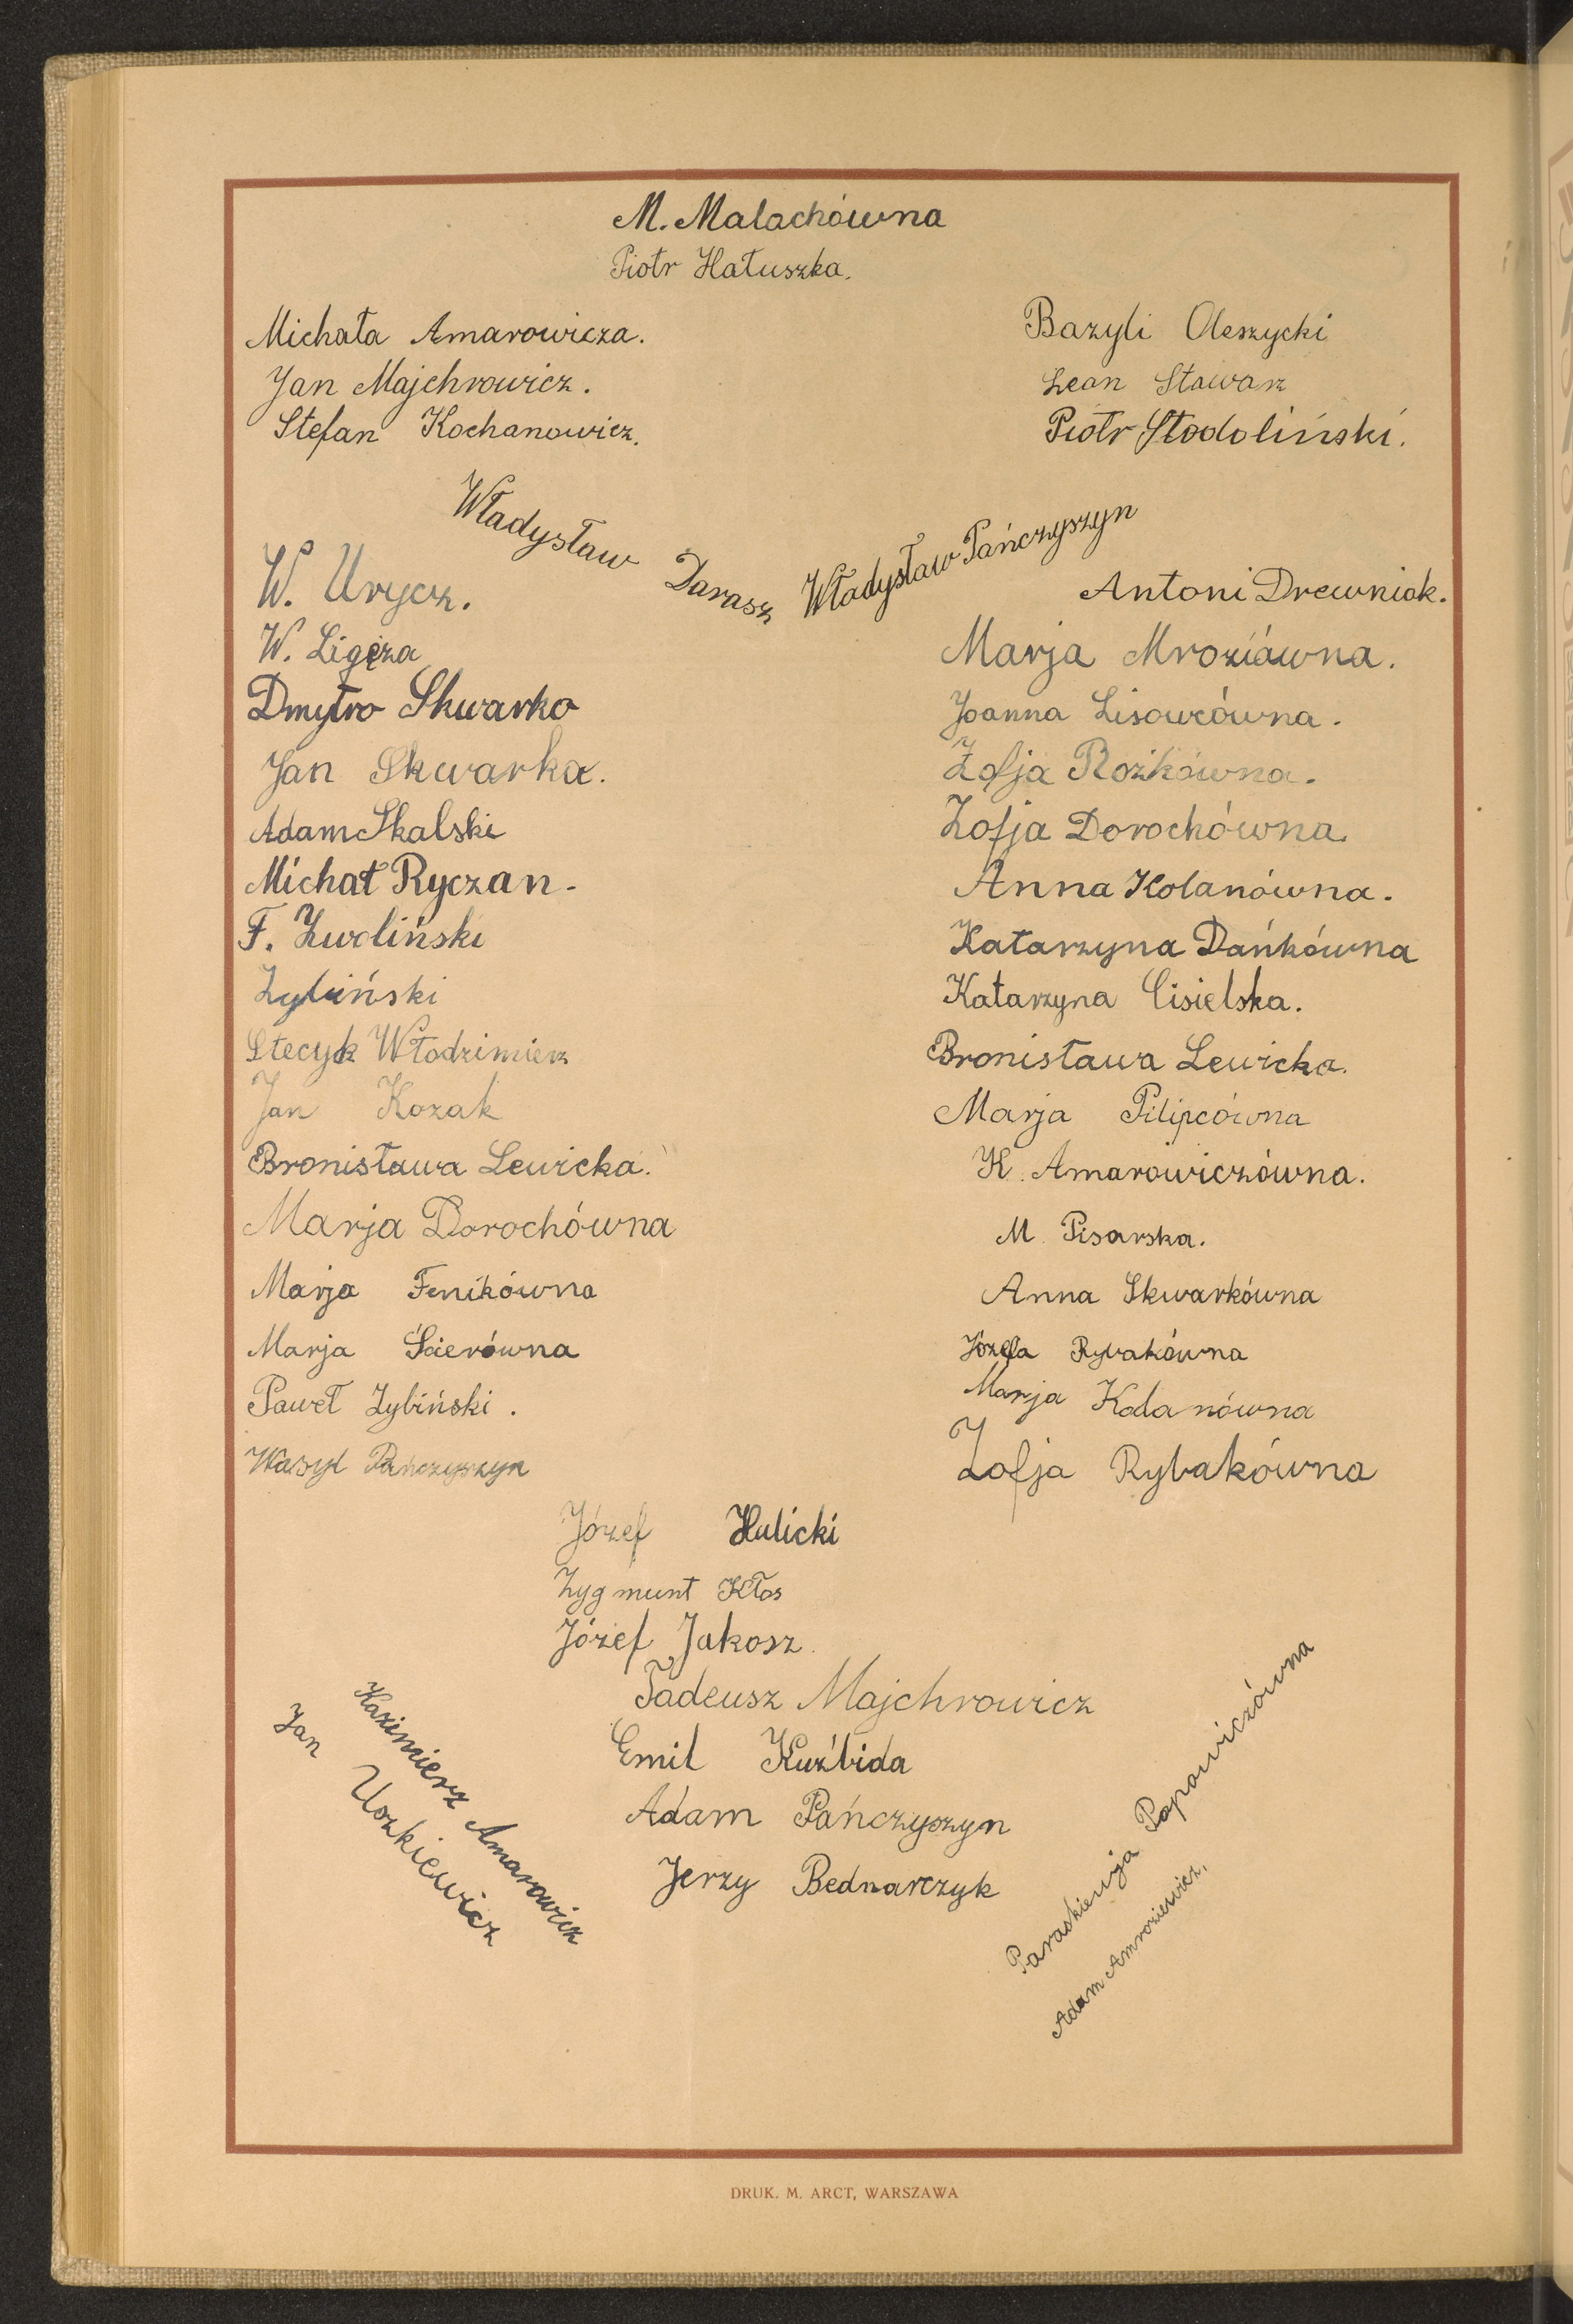 M. Malachówna
Piotr Hałuszka.
Michała Amarowicza.
Jan Majchrowicz.
Stefan Kochanowicz.
Bazyli Oleszycki
Leon Stawarz
Piotr Stodoliński.
Władysław Darasz
Władysław Pańczyszyn
W. Urycz.
W. Ligęza
Dmytro Skwarko
Jan Skwarka.
Adam Skalski
Michał Ryczan.
F. Zwoliński
Zybiński
Stecyk Włodzimierz
Jan Kozak
Bronisława Lewicka.
Marja Dorochówna
Marja Fenikówna
Marja Ścierówna
Paweł Zybiński.
Wasyl Pańczyszyn
Antoni Drewniak.
Marja Mroziówna.
Joanna Lisowcówna.
Zofja Rożkówna.
Zofja Dorochówna.
Anna Kolanówna.
Katarzyna Dańkówna
Katarzyna Cisielska.
Bronisława Lewicka.
Marja Pilipcówna
K. Amarowiczówna.
M. Pisarska.
Anna Skwarkówna
Józefa Rybakówna
Marja Kolanówna
Zofja Rybakówna
Józef Hulicki
Zygmunt Kłos
Józef Jakosz.
Tadeusz Majchrowicz
Emil Kuźbida
Adam Pańczyszyn
Jerzy Bednarczyk
Kazimierz Amarowicz
Jan Uszkiewicz
Paraskiewja Popowiczówna
Adam Amroziewicz.
DRUK. M. ARCT, WARSZAWA